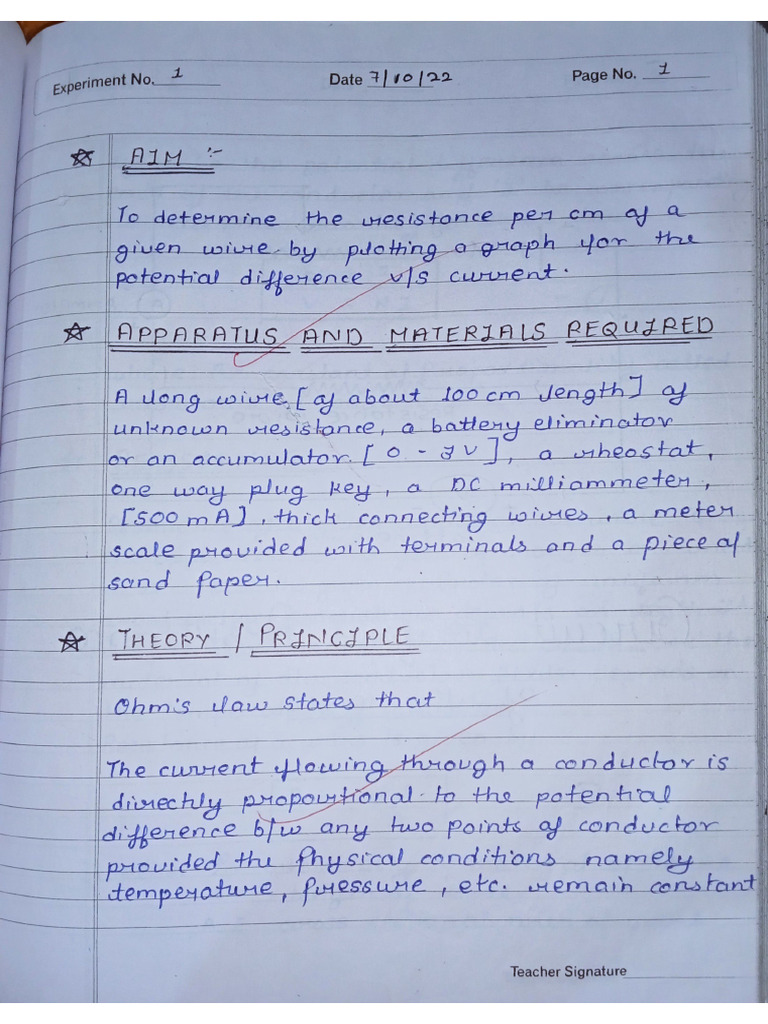 Experiment No. 1 Date 7/10/22 Page No. 1
AIM :-
To determine the resistance per cm of a
given wire by plotting a graph for the
potential difference v/s current.
APPARATUS AND MATERIALS REQUIRED
A long wire [of about 100 cm length] of
unknown resistance, a battery eliminator
or an accumulator [0 - 3V], a rheostat,
one way plug key, a DC milliammeter,
[500 mA], thick connecting wires, a meter
scale provided with terminals and a piece of
sand paper.
THEORY / PRINCIPLE
Ohm's law states that
The current flowing through a conductor is
directly proportional to the potential
difference b/w any two points of conductor
provided the physical conditions namely
temperature, pressure, etc. remain constant
Teacher Signature